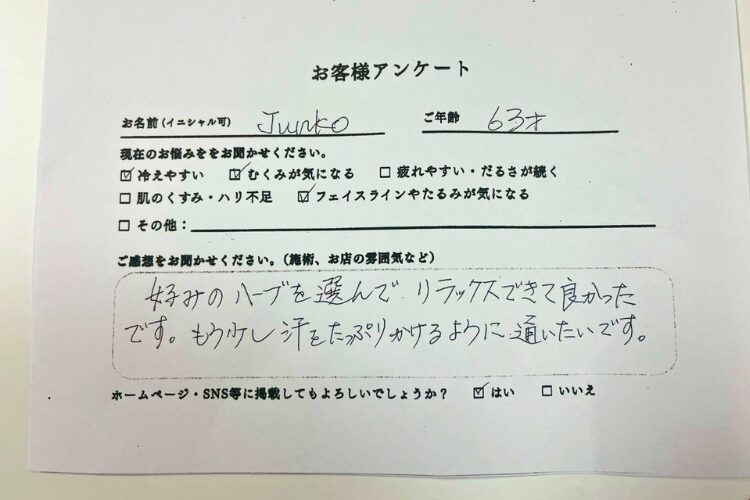 お客様アンケート
お名前(イニシャル可) Junko ご年齢 63才
現在のお悩みををお聞かせください。
☑ 冷えやすい ☑ むくみが気になる ☐ 疲れやすい・だるさが続く
☐ 肌のくすみ・ハリ不足 ☑ フェイスラインやたるみが気になる
☐ その他：
ご感想をお聞かせください。(施術、お店の雰囲気など)
好みのハーブを選んで、リラックスできて良かった
です。もう少し汗をたっぷりかけるように通いたいです。
ホームページ・SNS等に掲載してもよろしいでしょうか？ ☑ はい ☐ いいえ